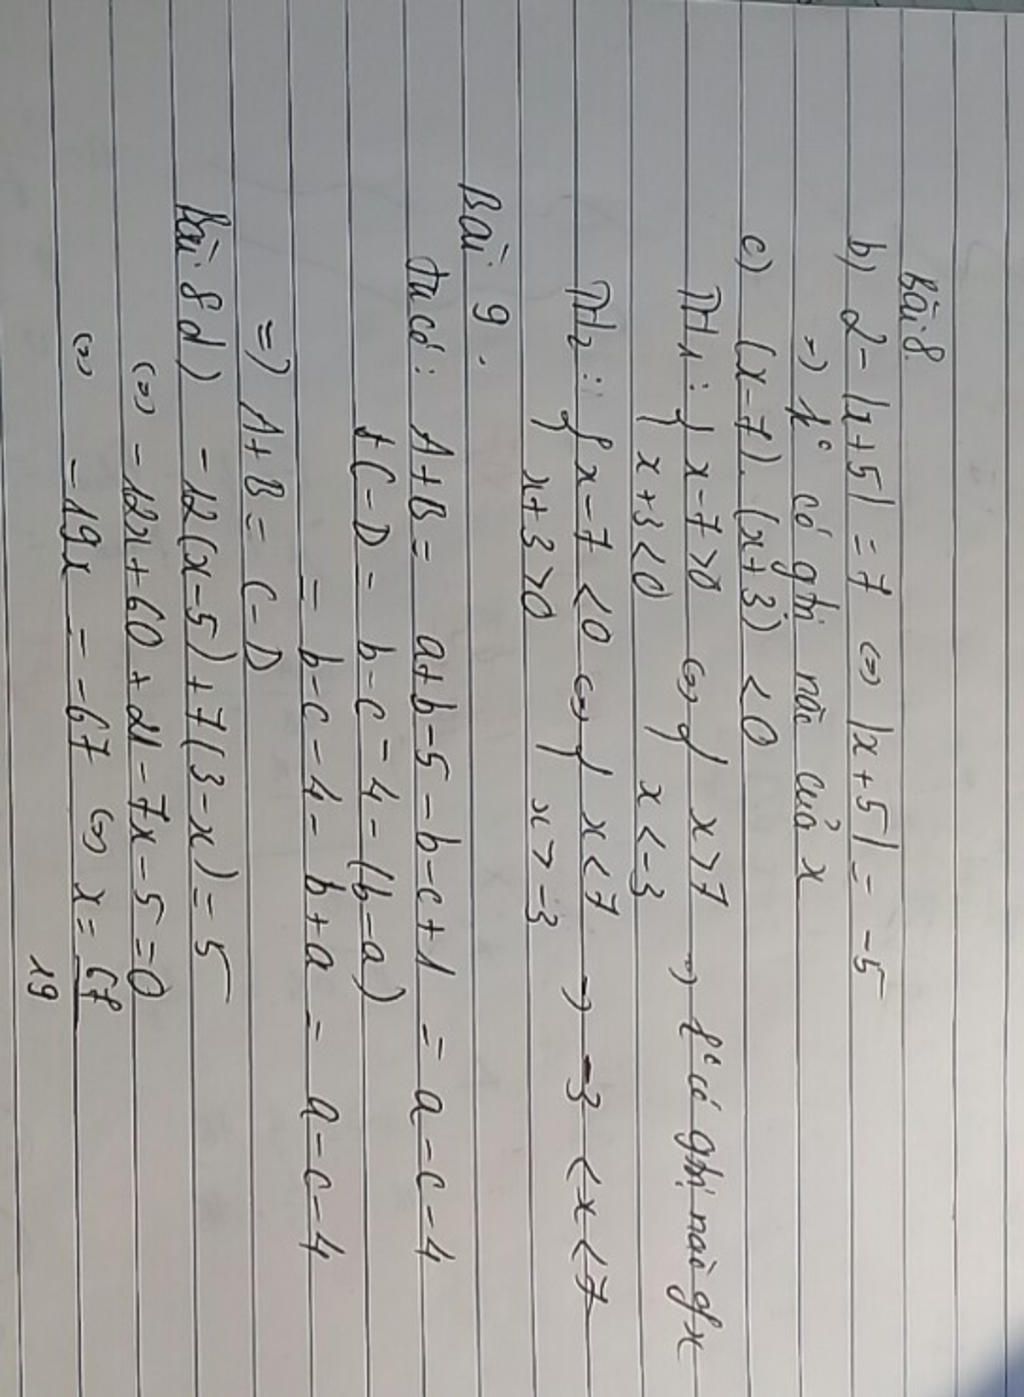 Bài 8
b) 2 - |x+5| = 7 <=> |x+5| = -5
=> k° có gtrị nào của x
c) (x-7).(x+3) < 0
TH1: { x-7>0 <=> { x>7 => k° có gtrị nào of x
{ x+3<0 { x<-3
TH2: { x-7<0 <=> { x<7 => -3 < x < 7
{ x+3>0 { x>-3
Bài 9.
Ta có: A+B = a+b-5-b-c+1 = a-c-4
+ C-D = b-c-4-(b-a)
= b-c-4-b+a = a-c-4
=> A+B = C-D
Bài 8 d) -12(x-5)+7(3-x) = 5
<=> -12x+60+21-7x-5=0
<=> -19x = -67 <=> x = 67/19